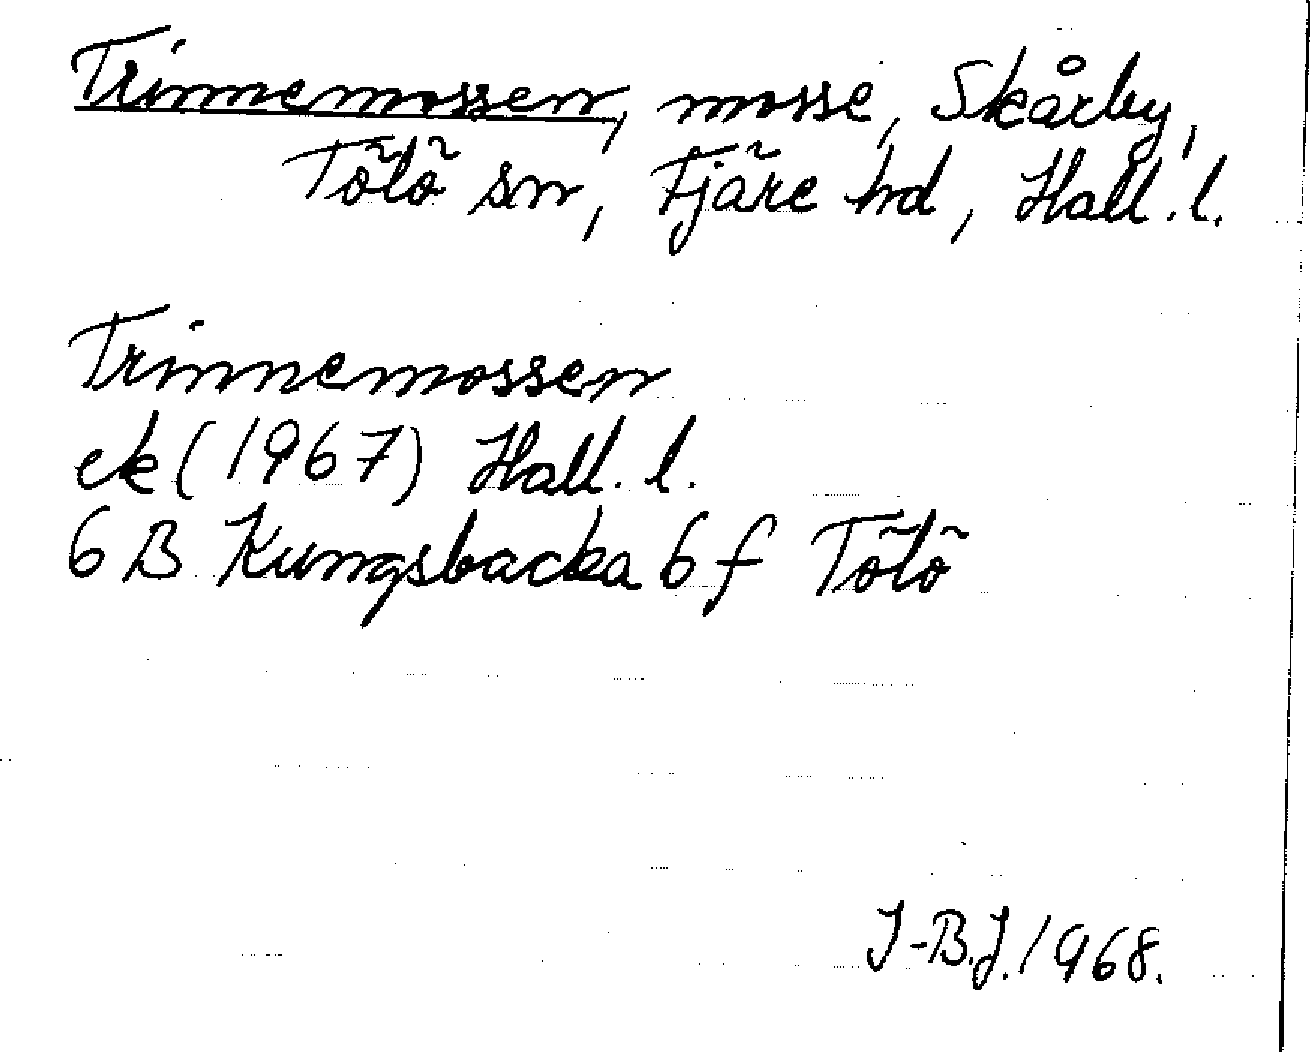 Trinnemossen, mosse, Skårby,
Tölö sn, Fjäre hd, Hall. l.
Trinnemossen
ek (1967) Hall. l.
6 B Kungsbacka 6 f Tölö
I-B.J. 1968.